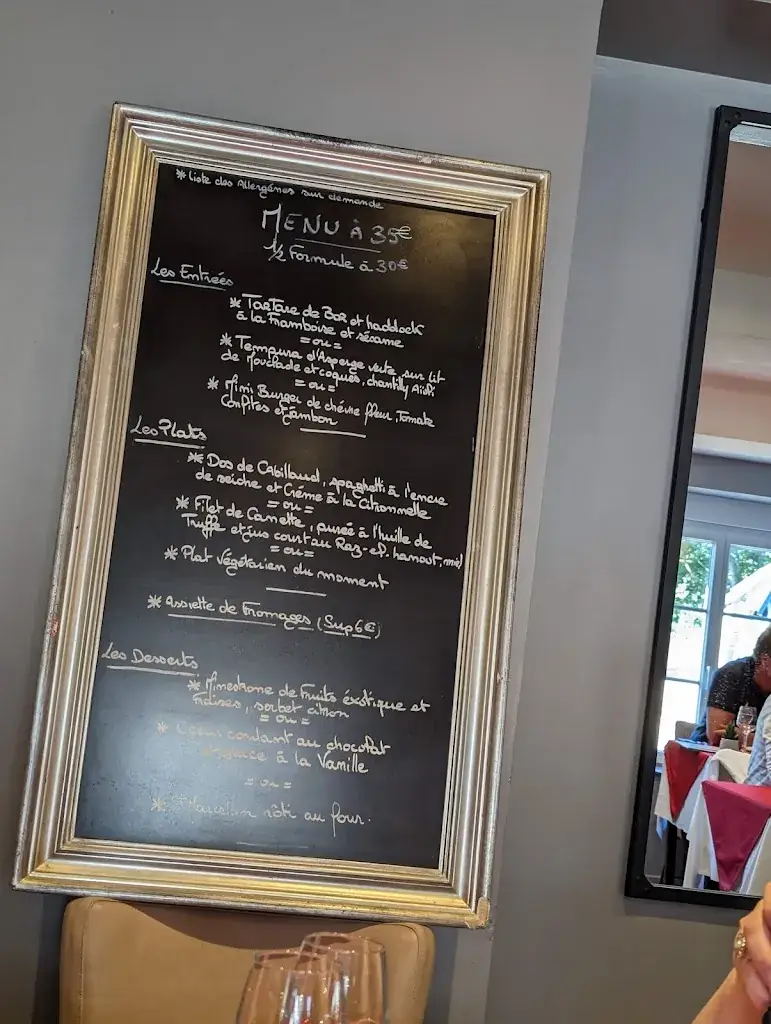 * Liste des Allergénes sur demande
MENU À 35€
1/2 Formule à 30€
Les Entrées
* Tartare de Bar et haddock
à la Framboise et sésame
= ou =
* Tempura d'Asperge verte, sur lit
de Mouclade et coques, chantilly Aïoli
= ou =
* Mini Burger de chèvre fleur, Tomate
Confites et jambon
Les Plats
* Dos de Cabillaud, spaghetti à l'encre
de seiche et Crème à la Citronnelle
= ou =
* Filet de Canette, purée à l'huile de
Truffe et jus court au Raz-el-hanout, miel
= ou =
* Plat Végétarien du moment
* Assiette de Fromages (Sup 6€)
Les Desserts
* Minestrone de Fruits éxotique et
Fraises, sorbet citron
= ou =
* Coeur coulant au chocolat
à la Vanille
= ou =
* St Marcellin rôti au four.